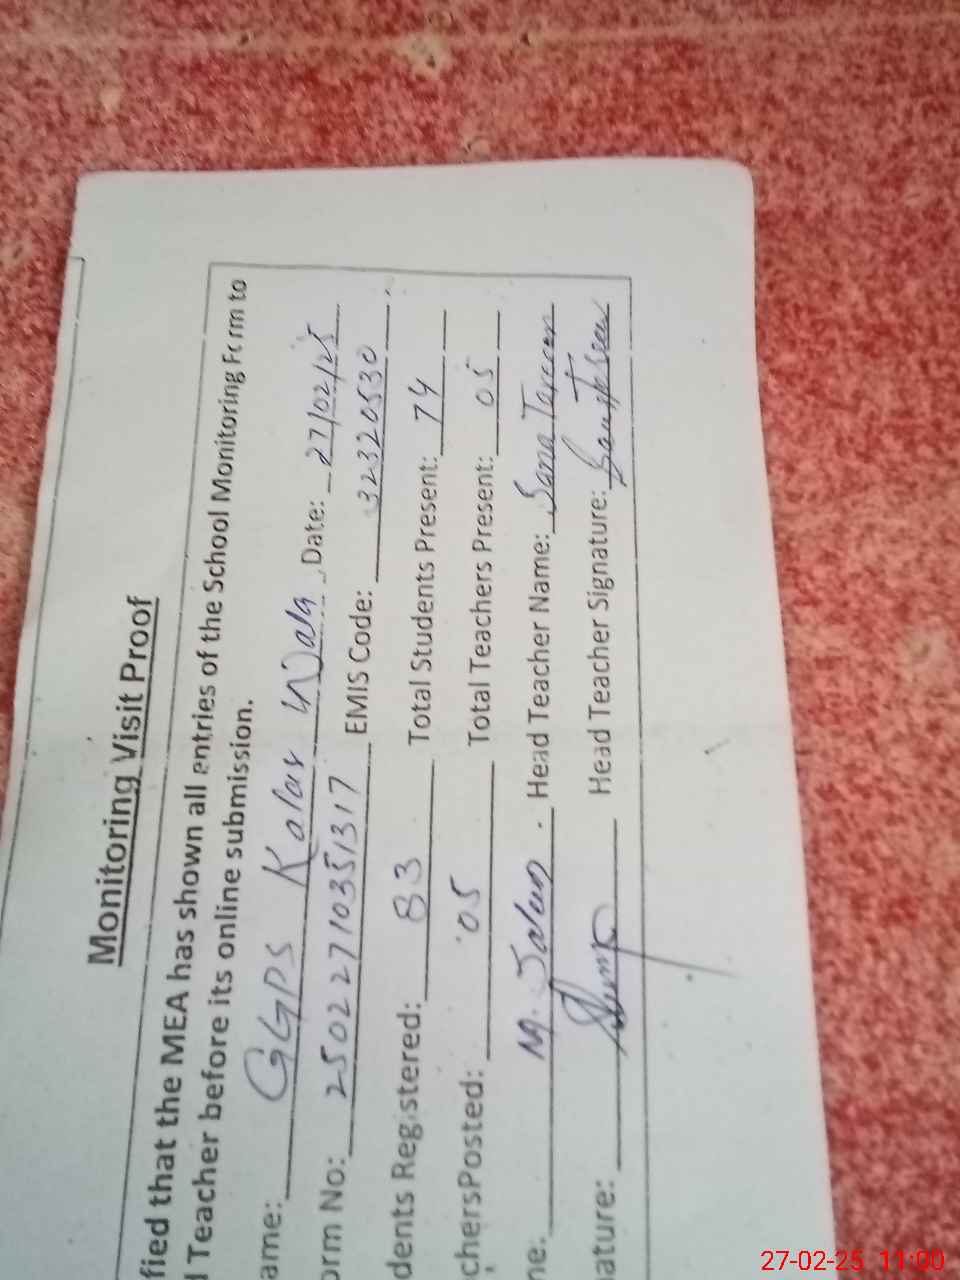 Monitoring Visit Proof
fied that the MEA has shown all entries of the School Monitoring Form to
d Teacher before its online submission.
ame: GGPS Kalar Wala Date: 27/02/25
orm No: 25022710351317 EMIS Code: 32320530
dents Registered: 83 Total Students Present: 74
chersPosted: 05 Total Teachers Present: 05
ne: M. Head Teacher Name: Sana Tareem
nature: Head Teacher Signature:
27-02-25 11:00